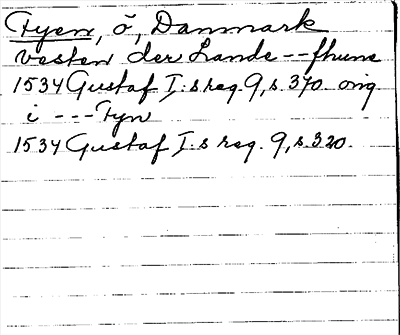 Fyen, ö, Danmark
vesten der Lande -- fhune
1534 Gustaf I:s reg. 9, s. 370. orig
i --- Fyn
1534 Gustaf I:s reg. 9, s. 320.